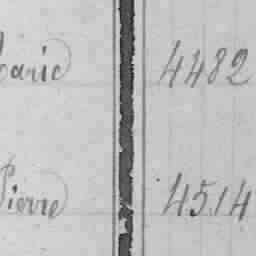 Marie 4482
Pierre 4514